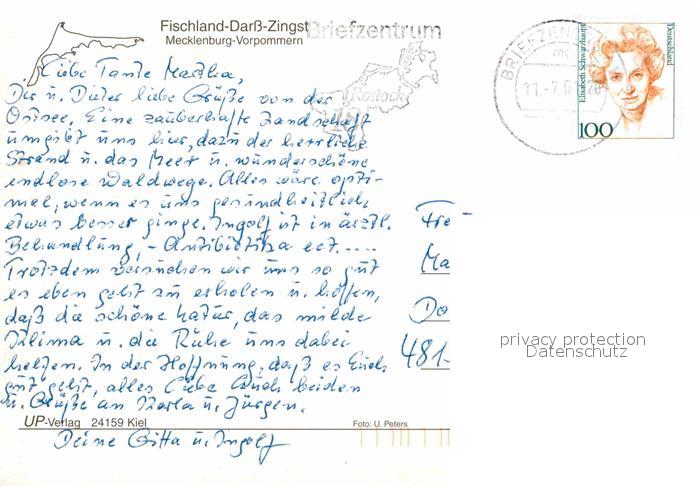 Fischland-Darß-Zingst
Mecklenburg-Vorpommern
Briefzentrum
Rostock
BRIEFZEN
11.-7.0
Elisabeth Schwarzhaupt
Deutschland
100
Liebe Tante Martha,
Dir u. Dieter liebe Grüße von der
Ostsee. Eine zauberhafte Landschaft
umgibt uns hier, dazu der herrliche
Strand u. das Meer u. wunderschöne
endlose Waldwege. Alles wäre opti-
mal, wenn es uns gesundheitlich
etwas besser ginge. Ingolf ist in ärztl.
Behandlung, - Antibiotika ect. ....
Trotzdem versuchen wir uns so gut
es eben geht zu erholen u. hoffen,
daß die schöne Natur, das milde
Klima u. die Ruhe uns dabei
helfen. In der Hoffnung, daß es Euch
gut geht, alles Liebe Euch beiden
u. Grüße an Karla u. Jürgen.
Deine Gitta u. Ingolf
Fre
Ma
Do
481
UP-Verlag 24159 Kiel
Foto: U. Peters
privacy protection
Datenschutz